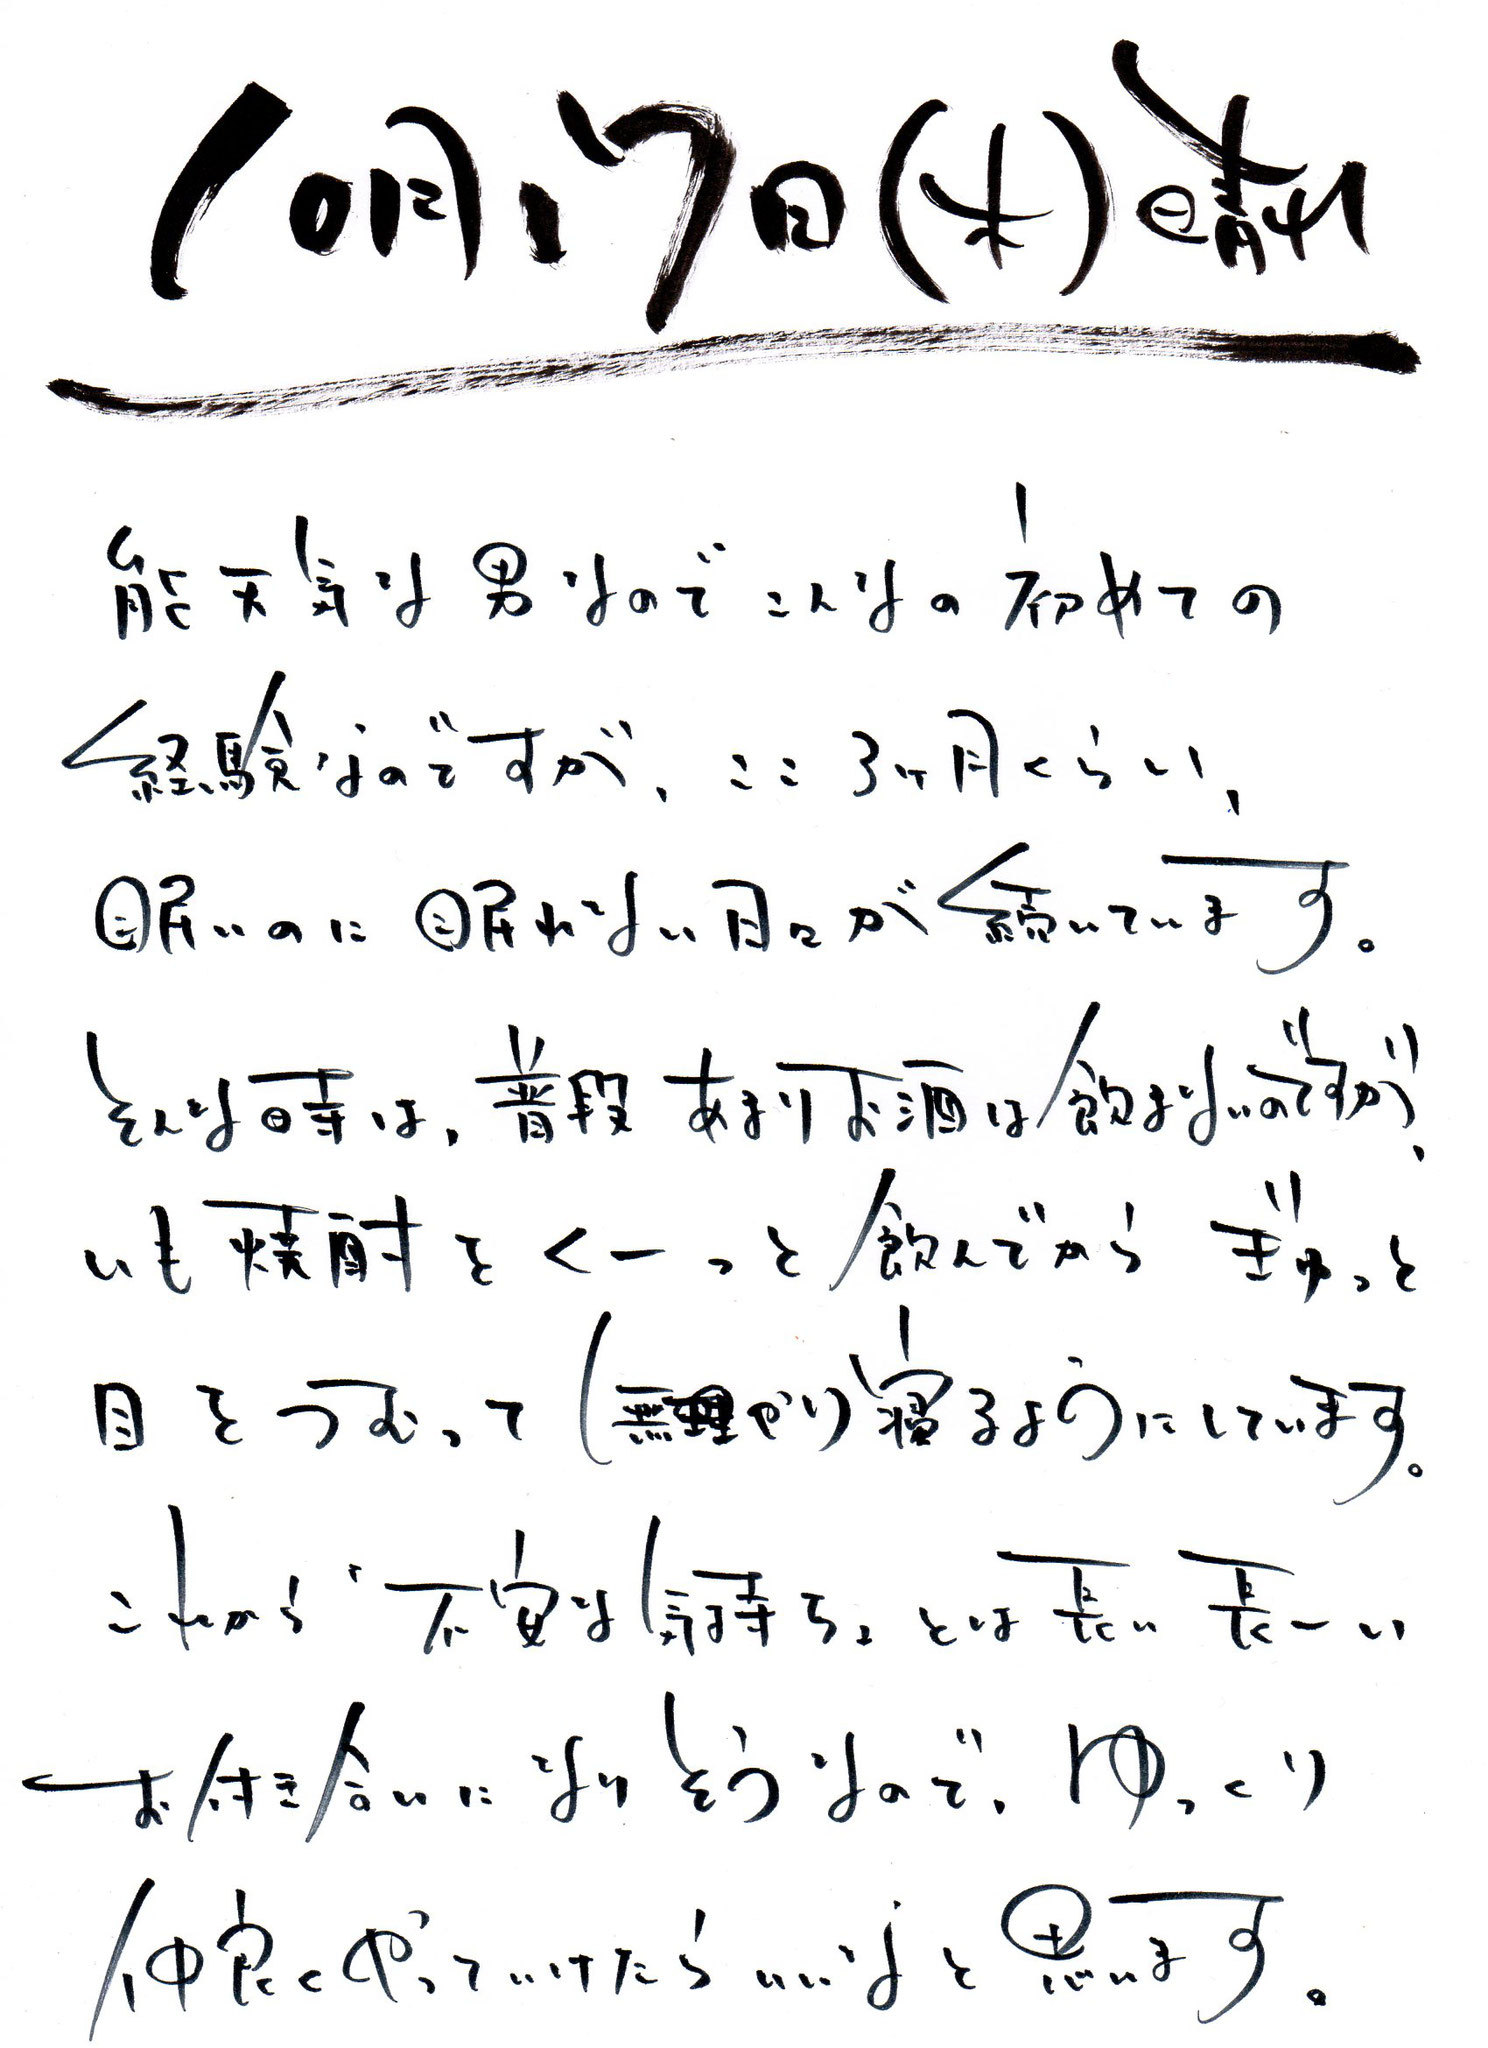 10月17日(木)晴れ
能天気な男なのでこんなの初めての
経験なのですが、ここ3ヶ月くらい、
眠いのに眠れない日々が続いています。
そんな時は、普段あまりお酒は飲まないのですが、
いも焼酎をくーっと飲んでから ぎゅっと
目をつむって(無理やり)寝るようにしています。
これから「不安な気持ち」とは長い長ーい
お付き合いになりそうなので、ゆっくり
仲良くやっていけたらいいなと思います。